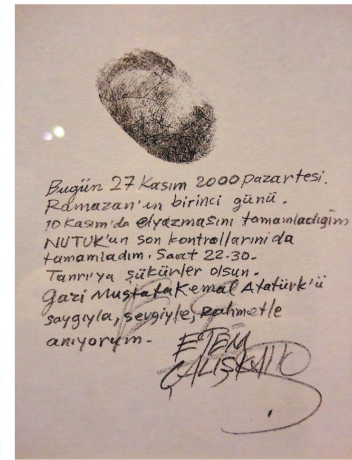 Bugün 27 Kasım 2000 pazartesi.
Ramazan'ın birinci günü.
10 Kasım'da elyazmasını tamamladığım
NUTUK'un son kontrollarını da
tamamladım. Saat 22-30.
Tanrı'ya şükürler olsun.
Gazi Mustafa Kemal Atatürk'ü
saygıyla, sevgiyle, rahmetle
anıyorum.
ETEM
ÇALIŞKAN